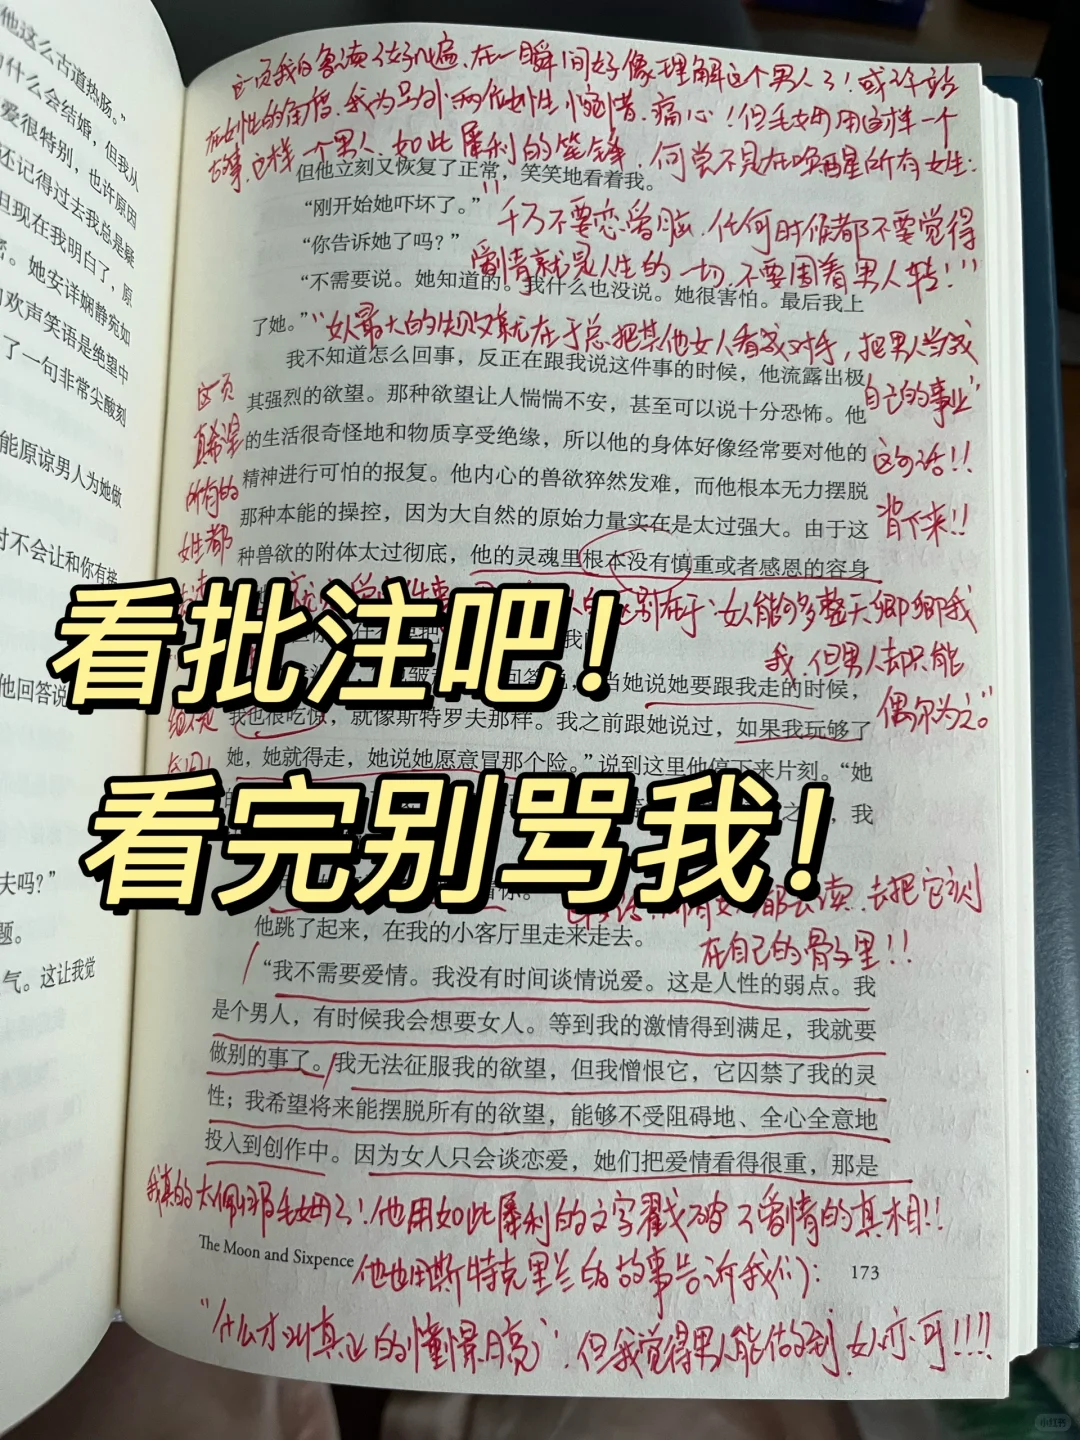 他这么古道热肠。”
什么会结婚，但我从
爱很特别，也许原因
还记得过去我总是疑
但现在我明白了，原
。她安详娴静宛如
欢声笑语是绝望中
了一句非常尖酸刻
能原谅男人为她做
对不会让和你有
他回答说
夫吗？”
题。
气。这让我觉
这页我自己读了好几遍，在一瞬间好像理解这个男人了！或许站
在女性的角度，我为书外两位女性惋惜、痛心！但毛姆用这样一个
故事，这样一个男人，如此犀利的笔锋，何尝不是在唤醒所有女性：
但他立刻又恢复了正常，笑笑地看着我。
“刚开始她吓坏了。”
“千万不要恋爱脑，任何时候都不要觉得
“你告诉她了吗？”
爱情就是人生的一切，不要围着男人转！”
“不需要说。她知道的。我什么也没说。她很害怕。最后我上
了她。”
“女人最大的失败就在于总把其他女人看成对手，把男人当成
自己的事业”
这句话！！
背下来！！
我不知道怎么回事，反正在跟我说这件事的时候，他流露出极
其强烈的欲望。那种欲望让人惴惴不安，甚至可以说十分恐怖。他
的生活很奇怪地和物质享受绝缘，所以他的身体好像经常要对他的
精神进行可怕的报复。他内心的兽欲猝然发难，而他根本无力摆脱
那种本能的操控，因为大自然的原始力量实在是太过强大。由于这
种兽欲的附体太过彻底，他的灵魂里根本没有慎重或者感恩的容身
这页
真希望
所有的
女性都
区别在于：女人能够整天卿卿我
我，但男人却只能
偶尔为之。”
看批注吧！
当她说她要跟我走的时候，
我也很吃惊，就像斯特罗夫那样。我之前跟她说过，如果我玩够了
她，她就得走，她说她愿意冒那个险。”说到这里他停下来片刻。“她
，我
看完别骂我！
都去读，去把它刻
在自己的骨子里！！
他跳了起来，在我的小客厅里走来走去。
“我不需要爱情。我没有时间谈情说爱。这是人性的弱点。我
是个男人，有时候我会想要女人。等到我的激情得到满足，我就要
做别的事了。我无法征服我的欲望，但我憎恨它，它囚禁了我的灵
性；我希望将来能摆脱所有的欲望，能够不受阻碍地、全心全意地
投入到创作中。因为女人只会谈恋爱，她们把爱情看得很重，那是
我真的太佩服毛姆了！他用如此犀利的文字戳破了爱情的真相！！
The Moon and Sixpence
他也用斯特克里兰的故事告诉我们：
173
“什么才叫真正的憧憬月亮”，但我觉得男人能做到，女人亦可！！！！
小红书